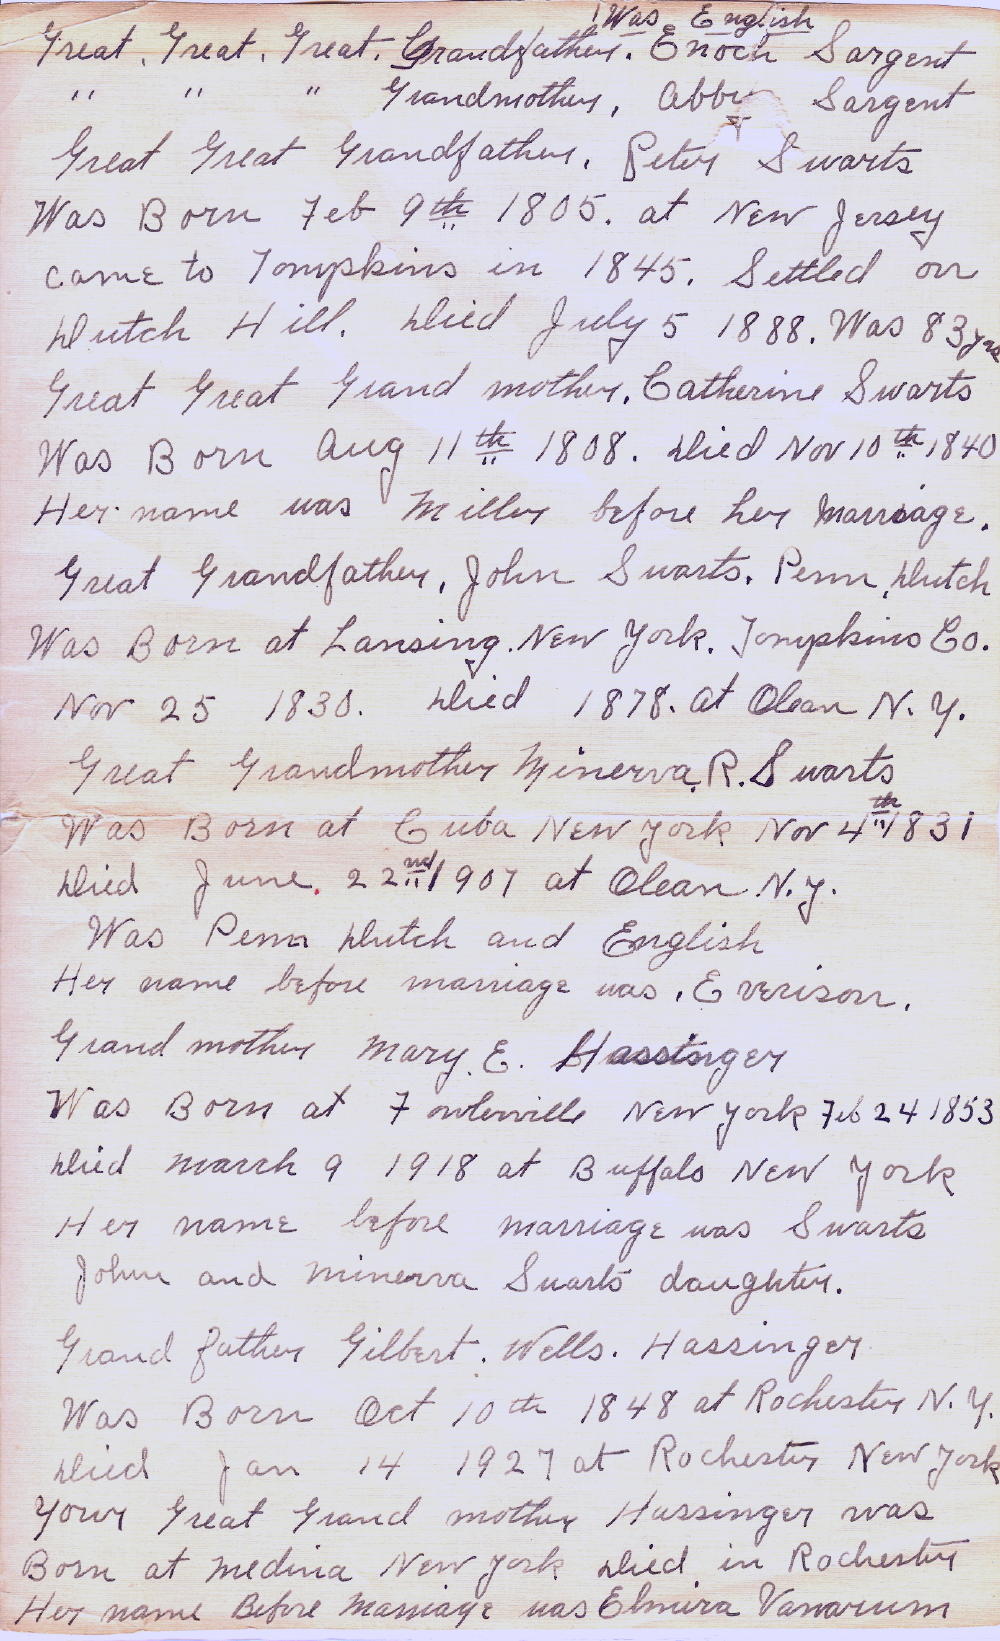 Was English
Great. Great. Great. Grandfather. Enoch Sargent
" " " Grandmother, Abby Sargent
Great Great Grandfather. Peter Swarts
Was Born Feb 9th 1805. at New Jersey
came to Tompkins in 1845. Settled on
Dutch Hill. Died July 5 1888. Was 83 yrs
Great Great Grand mother. Catherine Swarts
Was Born Aug 11th 1808. Died Nov 10th 1840
Her name was Miller before her Marriage.
Great Grandfather, John Swarts. Penn, Dutch
Was Born at Lansing. New York. Tompkins Co.
Nov 25 1830. Died 1878. at Olean N. Y.
Great Grandmother Minerva. R. Swarts
Was Born at Cuba New York Nov 4th 1831
Died June. 22nd 1907 at Olean N.Y.
Was Penn Dutch and English
Her name before marriage was. Everison.
Grand mother Mary. E. Hassinger
Was Born at Fowlerville New York Feb 24 1853
Died March 9 1918 at Buffalo New York
Her name before marriage was Swarts
John and Minerva Swarts daughter.
Grand father Gilbert. Wells. Hassinger
Was Born Oct 10th 1848 at Rochester N. Y.
Died Jan 14 1927 at Rochester New York
Your Great Grand mother Hassinger was
Born at Medina New York Died in Rochester
Her name Before Marriage was Elmira Vanarnum